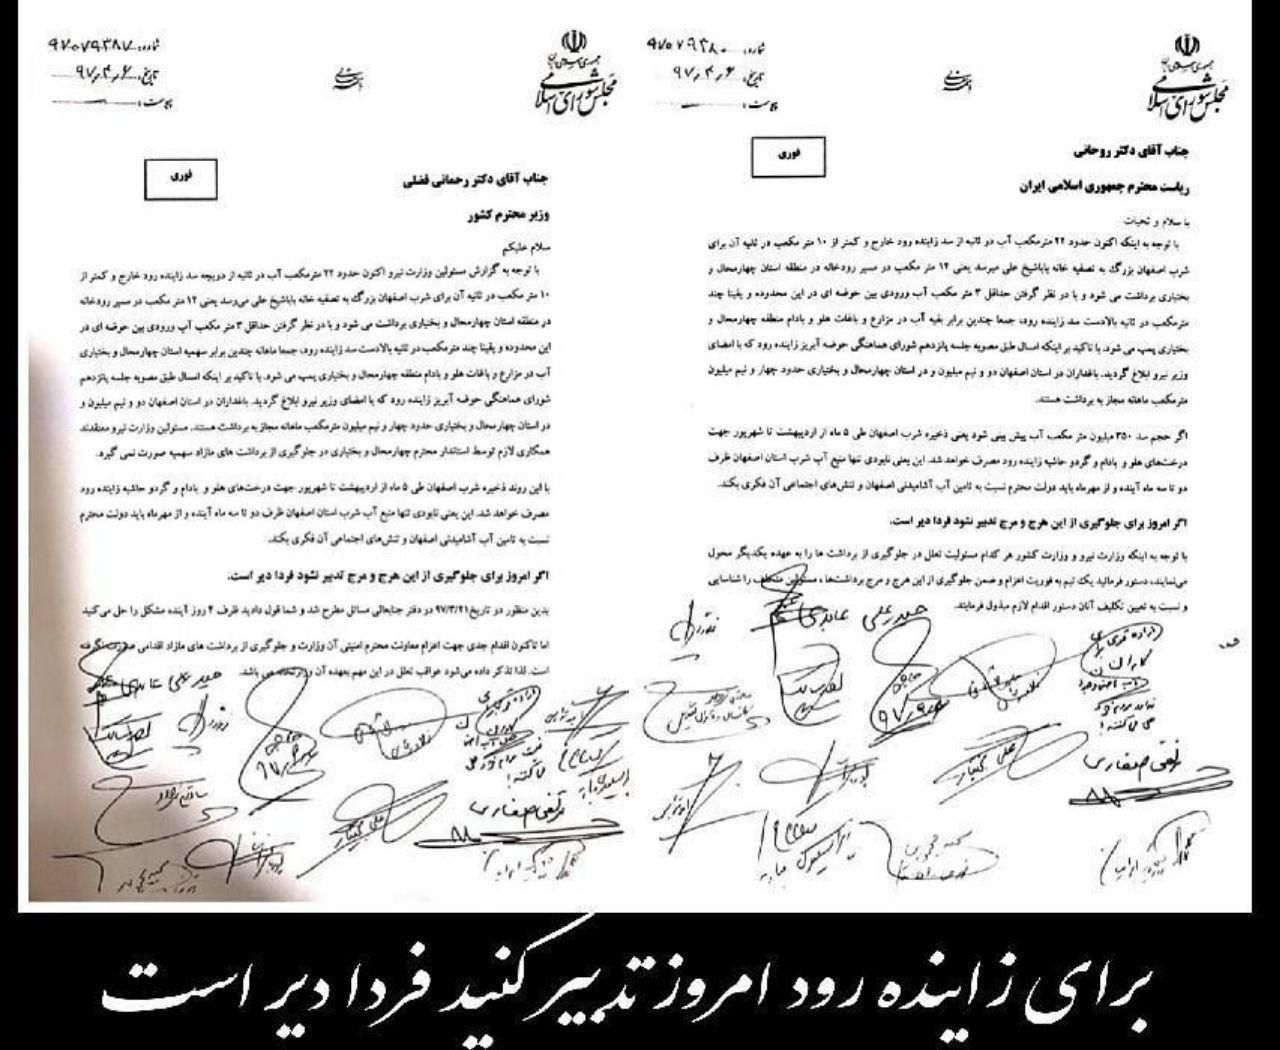 جمهوری اسلامی ایران
مجلس شورای اسلامی
شماره: ۹۷۰۷۹۳۸۰
تاریخ: ۹۷٫۴٫۶
پیوست:
فوری
جناب آقای دکتر روحانی
ریاست محترم جمهوری اسلامی ایران
با سلام و تحیات
با توجه به اینکه اکنون حدود ۲۲ مترمکعب آب در ثانیه از سد زاینده رود خارج و کمتر از ۱۰ متر مکعب در ثانیه آن برای
شرب اصفهان بزرگ به تصفیه خانه باباشیخ علی میرسد یعنی ۱۲ متر مکعب در مسیر رودخانه در منطقه استان چهارمحال و
بختیاری برداشت می شود و با در نظر گرفتن حداقل ۳ متر مکعب آب ورودی بین حوضه ای در این محدوده و یقینا چند
مترمکعب در ثانیه بالادست سد زاینده رود، جمعا چندین برابر بقیه آب در مزارع و باغات هلو و بادام منطقه چهارمحال و
بختیاری پمپ می شود. با تاکید بر اینکه امسال طبق مصوبه جلسه پانزدهم شورای هماهنگی حوضه آبریز زاینده رود که با امضای
وزیر نیرو ابلاغ گردید. باغداران در استان اصفهان دو و نیم میلیون و در استان چهارمحال و بختیاری حدود چهار و نیم میلیون
مترمکعب ماهانه مجاز به برداشت هستند.
اگر حجم سد ۳۵۰ میلیون متر مکعب آب پیش بینی شود یعنی ذخیره شرب اصفهان طی ۵ ماه از اردیبهشت تا شهریور جهت
درخت‌های هلو و بادام و گردو حاشیه زاینده رود مصرف خواهد شد. این یعنی نابودی تنها منبع آب شرب استان اصفهان ظرف
دو تا سه ماه آینده و از مهرماه باید دولت محترم نسبت به تامین آب آشامیدنی اصفهان و تنش‌های اجتماعی آن فکری بکند.
اگر امروز برای جلوگیری از این هرج و مرج تدبیر نشود فردا دیر است.
با توجه به اینکه وزارت نیرو و وزارت کشور هر کدام مسئولیت تعلل در جلوگیری از برداشت ها را به عهده یکدیگر محول
می‌نمایند، دستور فرمائید یک تیم به فوریت اعزام و ضمن جلوگیری از این هرج و مرج برداشت‌ها، مسئولین متخلف را شناسایی
و نسبت به تعیین تکلیف آنان دستور اقدام لازم مبذول فرمایند.
حیدرعلی عابدی
علی بختیار
جمهوری اسلامی ایران
مجلس شورای اسلامی
شماره: ۹۷۰۷۹۳۸۷
تاریخ: ۹۷٫۴٫۶
پیوست:
فوری
جناب آقای دکتر رحمانی فضلی
وزیر محترم کشور
سلام علیکم
با توجه به گزارش مسئولین وزارت نیرو اکنون حدود ۲۲ مترمکعب آب در ثانیه از دریچه سد زاینده رود خارج و کمتر از
۱۰ متر مکعب در ثانیه آن برای شرب اصفهان بزرگ به تصفیه خانه باباشیخ علی می‌رسد یعنی ۱۲ متر مکعب در مسیر رودخانه
در منطقه استان چهارمحال و بختیاری برداشت می شود و با در نظر گرفتن حداقل ۳ متر مکعب آب ورودی بین حوضه ای در
این محدوده و یقینا چند مترمکعب در ثانیه بالادست سد زاینده رود، جمعا ماهانه چندین برابر سهمیه استان چهارمحال و بختیاری
آب در مزارع و باغات هلو و بادام منطقه چهارمحال و بختیاری پمپ می شود. با تاکید بر اینکه امسال طبق مصوبه جلسه پانزدهم
شورای هماهنگی حوضه آبریز زاینده رود که با امضای وزیر نیرو ابلاغ گردید. باغداران دو استان اصفهان دو و نیم میلیون و
در استان چهارمحال و بختیاری حدود چهار و نیم میلیون مترمکعب ماهانه مجاز به برداشت هستند. مسئولین وزارت نیرو معتقدند
همکاری لازم توسط استاندار محترم چهارمحال و بختیاری در جلوگیری از برداشت های مازاد سهمیه صورت نمی گیرد.
با این روند ذخیره شرب اصفهان طی ۵ ماه از اردیبهشت تا شهریور جهت درخت‌های هلو و بادام و گردو حاشیه زاینده رود
مصرف خواهد شد. این یعنی نابودی تنها منبع آب شرب استان اصفهان ظرف دو تا سه ماه آینده و از مهرماه باید دولت محترم
نسبت به تامین آب آشامیدنی اصفهان و تنش‌های اجتماعی آن فکری بکند.
اگر امروز برای جلوگیری از این هرج و مرج تدبیر نشود فردا دیر است.
بدین منظور در تاریخ ۹۷/۳/۲۱ در دفتر جنابعالی مسائل مطرح شد و شما قول دادید ظرف ۴ روز آینده مشکل را حل می‌کنید
اما تاکنون اقدام جدی جهت اعزام معاونت محترم امنیتی آن وزارت و جلوگیری از برداشت های مازاد اقدامی صورت نگرفته
است. لذا تذکر داده می‌شود عواقب تعلل در این مهم بعهده آن وزارتخانه می باشد.
حیدرعلی عابدی
علی بختیار
برای زاینده رود امروز تدبیر کنید فردا دیر است